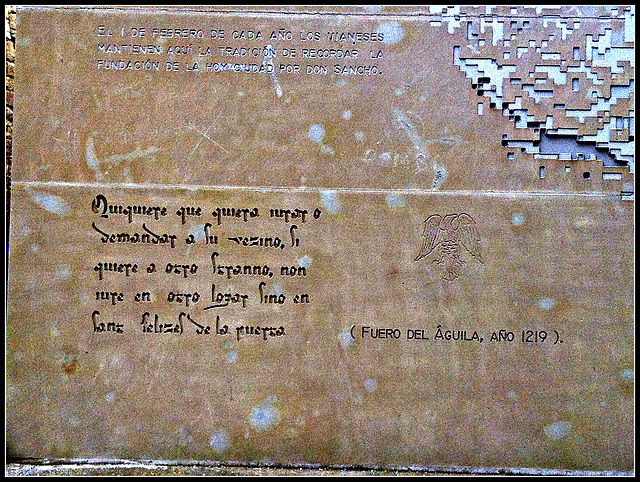 EL 1 DE FEBRERO DE CADA AÑO LOS VIANESES
MANTIENEN AQUÍ LA TRADICIÓN DE RECORDAR LA
FUNDACIÓN DE LA HOY CIUDAD POR DON SANCHO.
Quiquiere que quiera iurar o
demandar a su vezino, si
quiere a otro stranno, non
iure en otro logar sino en
sant felizes de la puerta
( FUERO DEL ÂGUILA, AÑO 1219 ).